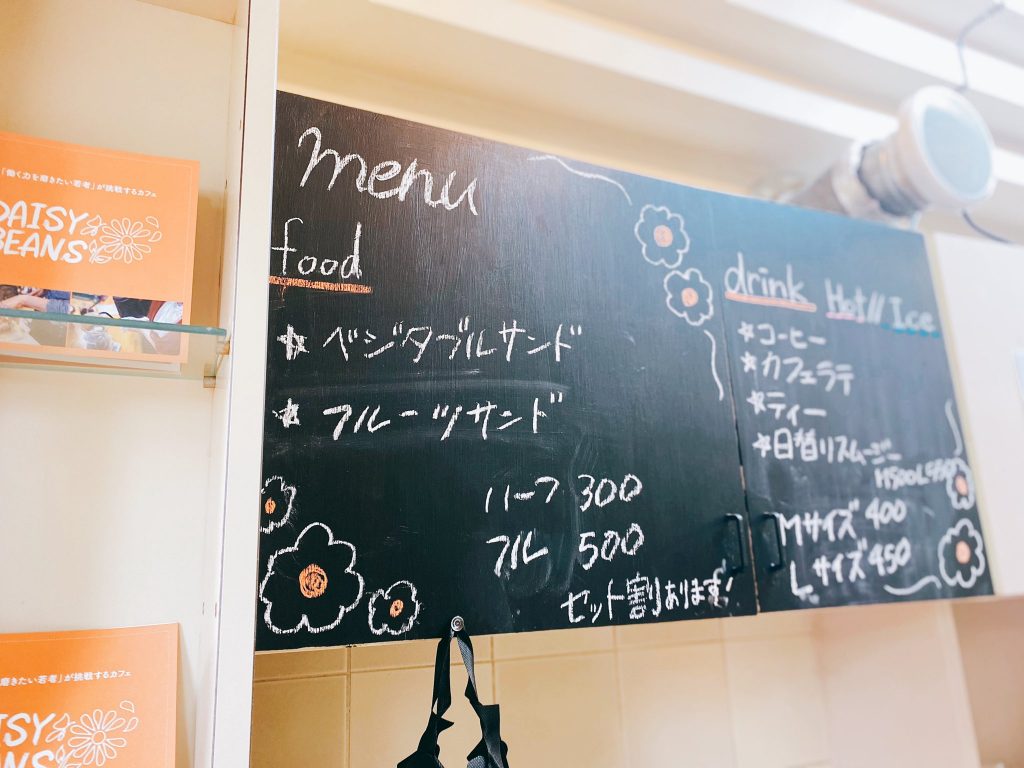 「働く力を磨きたい若者」が挑戦するカフェ
DAISY
BEANS
menu
food
☆ ベジタブルサンド
☆ フルーツサンド
ハーフ 300
フル 500
セット割あります!
drink Hot// Ice
☆コーヒー
☆カフェラテ
☆ティー
☆日替りスムージー
M500L550
Mサイズ 400
Lサイズ 450
磨きたい若者」が挑戦するカフェ
ISY
ANS